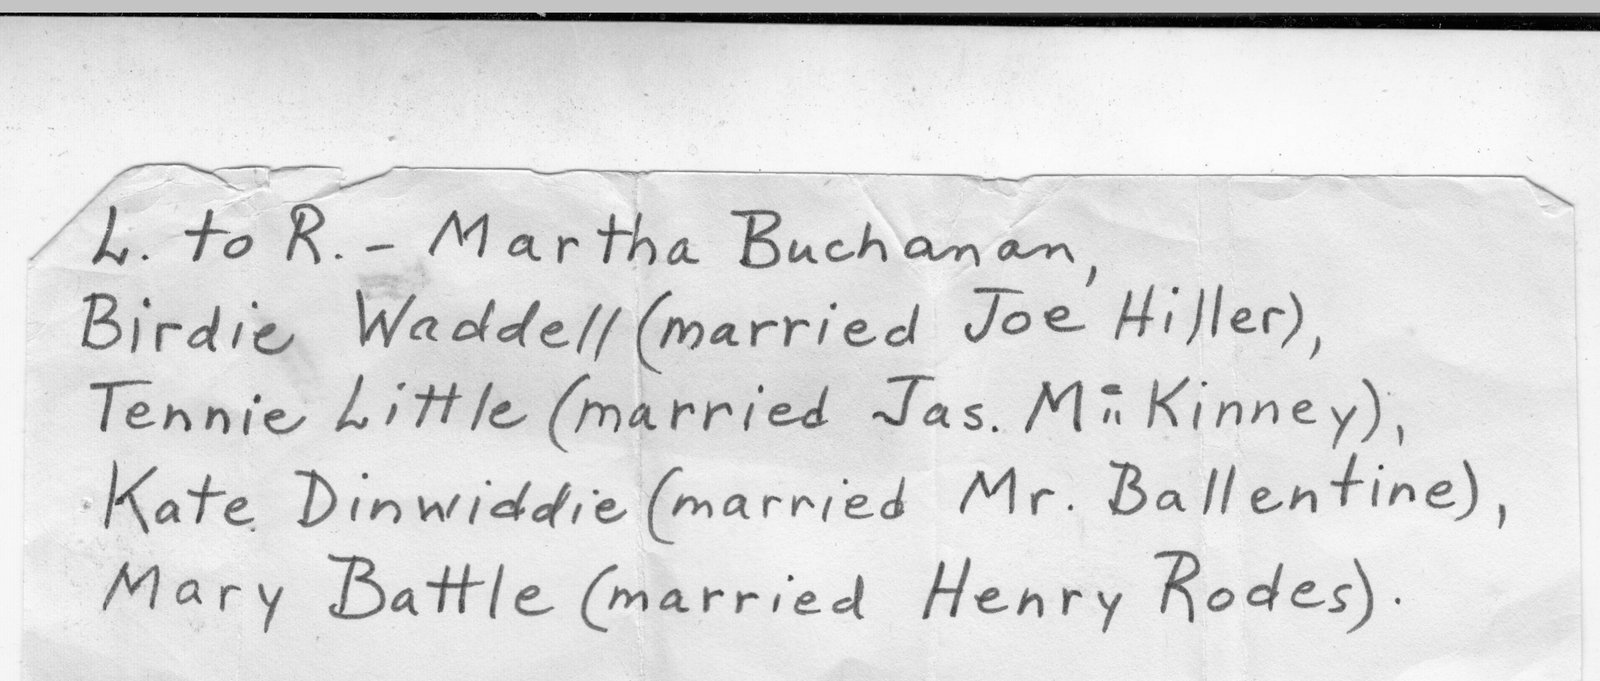 L. to R. - Martha Buchanan,
Birdie Waddell (married Joe Hiller),
Tennie Little (married Jas. McKinney),
Kate Dinwiddie (married Mr. Ballentine),
Mary Battle (married Henry Rodes).